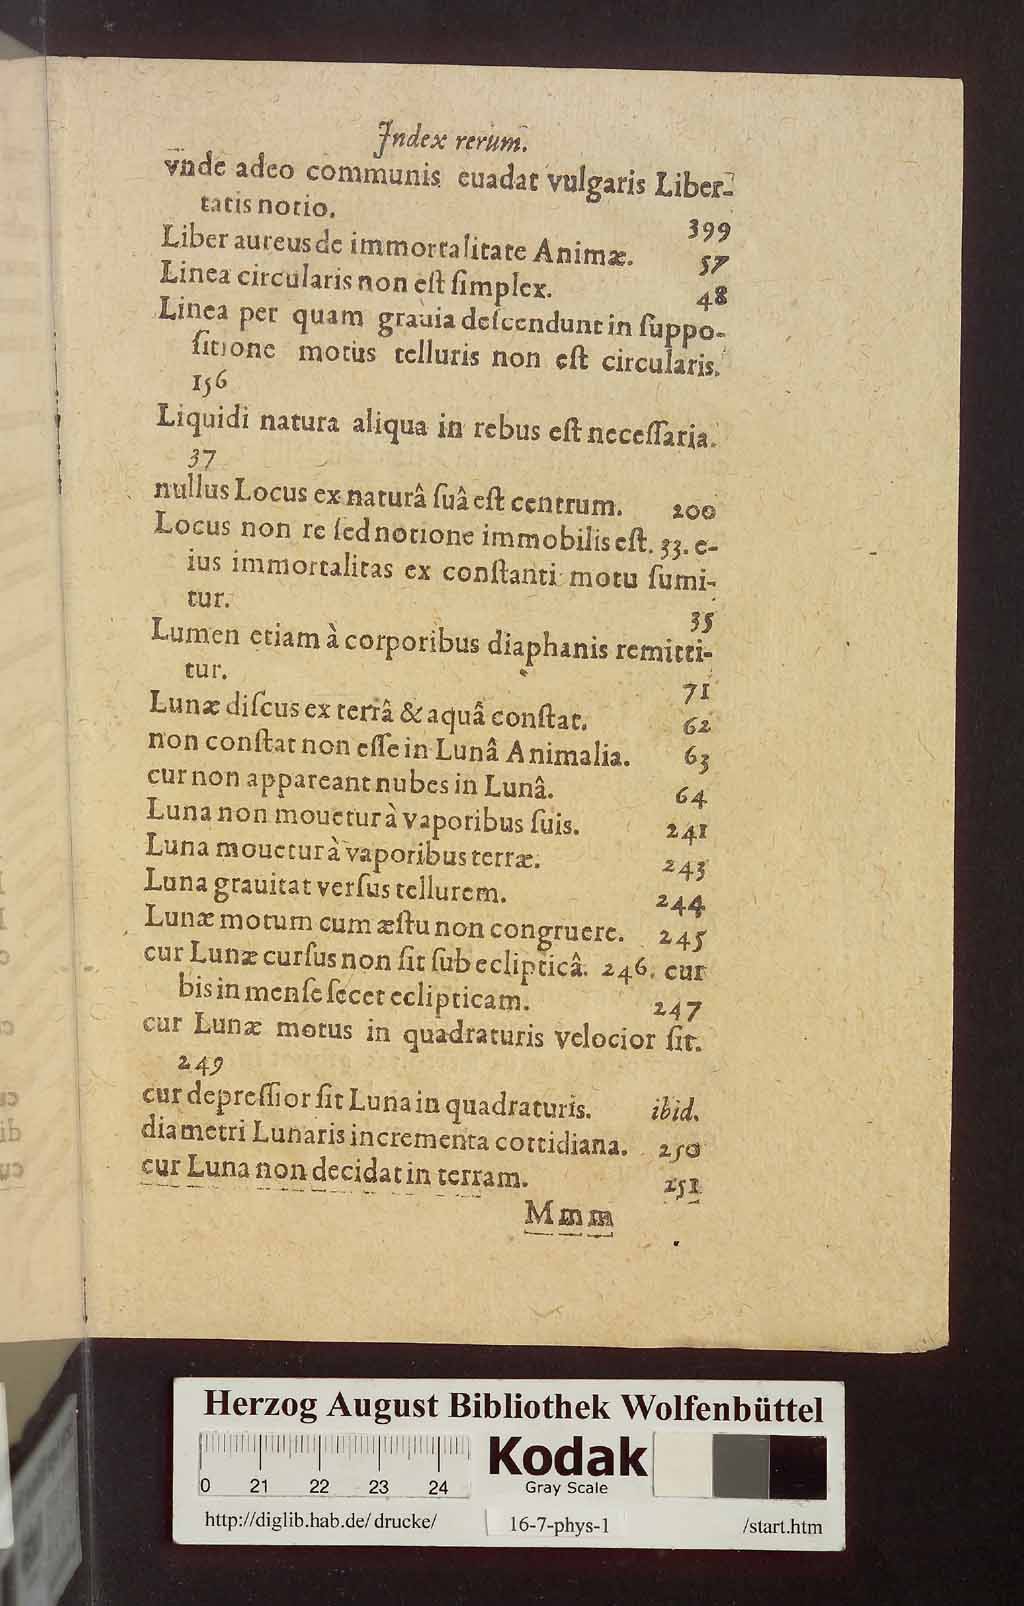 Index rerum.
vnde adeo communis euadat vulgaris Liber-
tatis notio. 399
Liber aureus de immortalitate Animæ. 57
Linea circularis non eſt ſimplex. 48
Linea per quam grauia deſcendunt in ſuppo-
ſitione motus telluris non eſt circularis.
156
Liquidi natura aliqua in rebus eſt neceſſaria.
37
nullus Locus ex naturâ ſuâ eſt centrum. 200
Locus non re ſed notione immobilis eſt. 33. e-
ius immortalitas ex conſtanti motu ſumi-
tur. 35
Lumen etiam à corporibus diaphanis remitti-
tur. 71
Lunæ diſcus ex terrâ & aquâ conſtat. 62
non conſtat non eſſe in Lunâ Animalia. 63
cur non appareant nubes in Lunâ. 64
Luna non mouetur à vaporibus ſuis. 241
Luna mouetur à vaporibus terræ. 243
Luna grauitat verſus tellurem. 244
Lunæ motum cum æſtu non congruere. 245
cur Lunæ curſus non ſit ſub eclipticâ. 246. cur
bis in menſe ſecet eclipticam. 247
cur Lunæ motus in quadraturis velocior ſit.
249
cur depreſſior ſit Luna in quadraturis. ibid.
diametri Lunaris incrementa cottidiana. 250
cur Luna non decidat in terram. 251
Mmm
Herzog August Bibliothek Wolfenbüttel
0 21 22 23 24
Kodak
Gray Scale
http://diglib.hab.de/drucke/ 16-7-phys-1 /start.htm